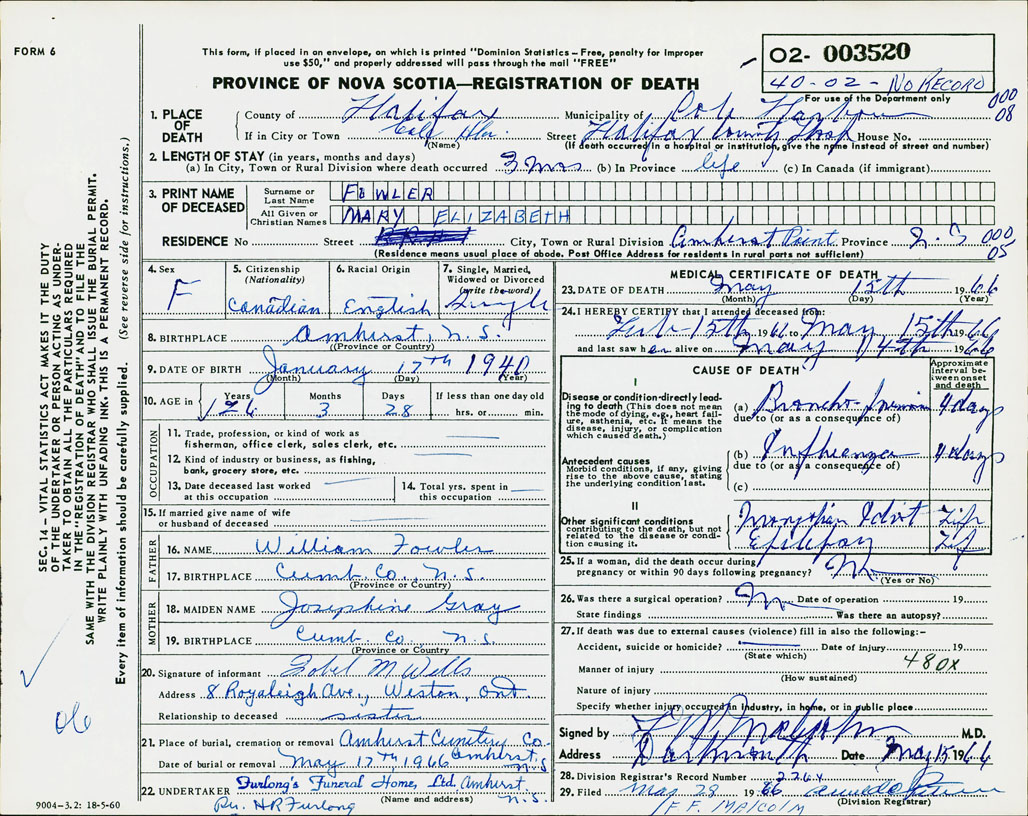 FORM 6
This form, if placed in an envelope, on which is printed "Dominion Statistics – Free, penalty for improper
use $50," and properly addressed will pass through the mail "FREE"
02- 003520
40-02- No RECORD
For use of the Department only
PROVINCE OF NOVA SCOTIA—REGISTRATION OF DEATH
000
08
1. PLACE OF DEATH
County of Halifax Municipality of Cole Harbour
If in City or Town Cole Hbr. Street Halifax County Hosp House No.
(Name) (If death occurred in a hospital or institution, give the name instead of street and number)
2. LENGTH OF STAY (in years, months and days)
(a) In City, Town or Rural Division where death occurred 3 mos (b) In Province life (c) In Canada (if immigrant)
3. PRINT NAME OF DECEASED
Surname or Last Name FOWLER
All Given or Christian Names MARY ELIZABETH
RESIDENCE No Street City, Town or Rural Division Amherst Point Province N.S
000
05
(Residence means usual place of abode. Post Office Address for residents in rural parts not sufficient)
4. Sex F
5. Citizenship (Nationality) Canadian
6. Racial Origin English
7. Single, Married, Widowed or Divorced (write the word) Single
8. BIRTHPLACE Amherst, N.S.
(Province or Country)
9. DATE OF BIRTH January 17th 1940
(Month) (Day) (Year)
10. AGE in Years 26 Months 3 Days 28 If less than one day old
hrs. or min.
OCCUPATION
11. Trade, profession, or kind of work as
fisherman, office clerk, sales clerk, etc.
12. Kind of industry or business, as fishing,
bank, grocery store, etc.
13. Date deceased last worked
at this occupation
14. Total yrs. spent in
this occupation
15. If married give name of wife
or husband of deceased
FATHER
16. NAME William Fowler
17. BIRTHPLACE Cumb. Co., N.S.
(Province or Country)
MOTHER
18. MAIDEN NAME Josephine Gray
19. BIRTHPLACE Cumb. Co. N.S.
(Province or Country)
20. Signature of informant M Wells
Address 8 Royaleigh Ave., Weston, Ont.
Relationship to deceased sister
21. Place of burial, cremation or removal Amherst Cemetery Co.
Amherst,
Date of burial or removal May 17th 1966 N.S
22. UNDERTAKER Furlong's Funeral Home, Ltd. Amherst,
N.S.
(Name and address)
Per. H R Furlong
MEDICAL CERTIFICATE OF DEATH
23. DATE OF DEATH May 15th 1966
(Month) (Day) (Year)
24. I HEREBY CERTIFY that I attended deceased from:
Feb 15th 1966 to May 15th 1966
and last saw her alive on May 14th 1966
CAUSE OF DEATH
Approximate interval between onset and death
I
Disease or condition directly leading to death (This does not mean the mode of dying, e.g., heart failure, asthenia, etc. It means the disease, injury, or complication which caused death.)
(a) Broncho-pneumonia 4 days
due to (or as a consequence of)
Antecedent causes
Morbid conditions, if any, giving rise to the above cause, stating the underlying condition last.
(b) Influenza 4 days
due to (or as a consequence of)
(c)
II
Other significant conditions contributing to the death, but not related to the disease or condition causing it.
Mongolian Idiot Life
Epilepsy Life
25. If a woman, did the death occur during
pregnancy or within 90 days following pregnancy? No
(Yes or No)
26. Was there a surgical operation? No Date of operation 19
State findings Was there an autopsy?
27. If death was due to external causes (violence) fill in also the following:–
Accident, suicide or homicide? Date of injury 19
(State which)
480X
Manner of injury
(How sustained)
Nature of injury
Specify whether injury occurred in industry, in home, or in public place
Signed by F.F. Malcolm M.D.
Address Dartmouth Date May 15 1966
28. Division Registrar's Record Number 2264
29. Filed May 28 1966
(Division Registrar)
F.F. MALCOLM
SEC. 14 – VITAL STATISTICS ACT MAKES IT THE DUTY
OF THE UNDERTAKER OR PERSON ACTING AS UNDER-
TAKER TO OBTAIN ALL THE PARTICULARS REQUIRED
IN THE "REGISTRATION OF DEATH" AND TO FILE THE
SAME WITH THE DIVISION REGISTRAR WHO SHALL ISSUE THE BURIAL PERMIT.
WRITE PLAINLY WITH UNFADING INK. THIS IS A PERMANENT RECORD.
Every item of information should be carefully supplied. (See reverse side for instructions.)
06
9004-3.2: 18-5-60